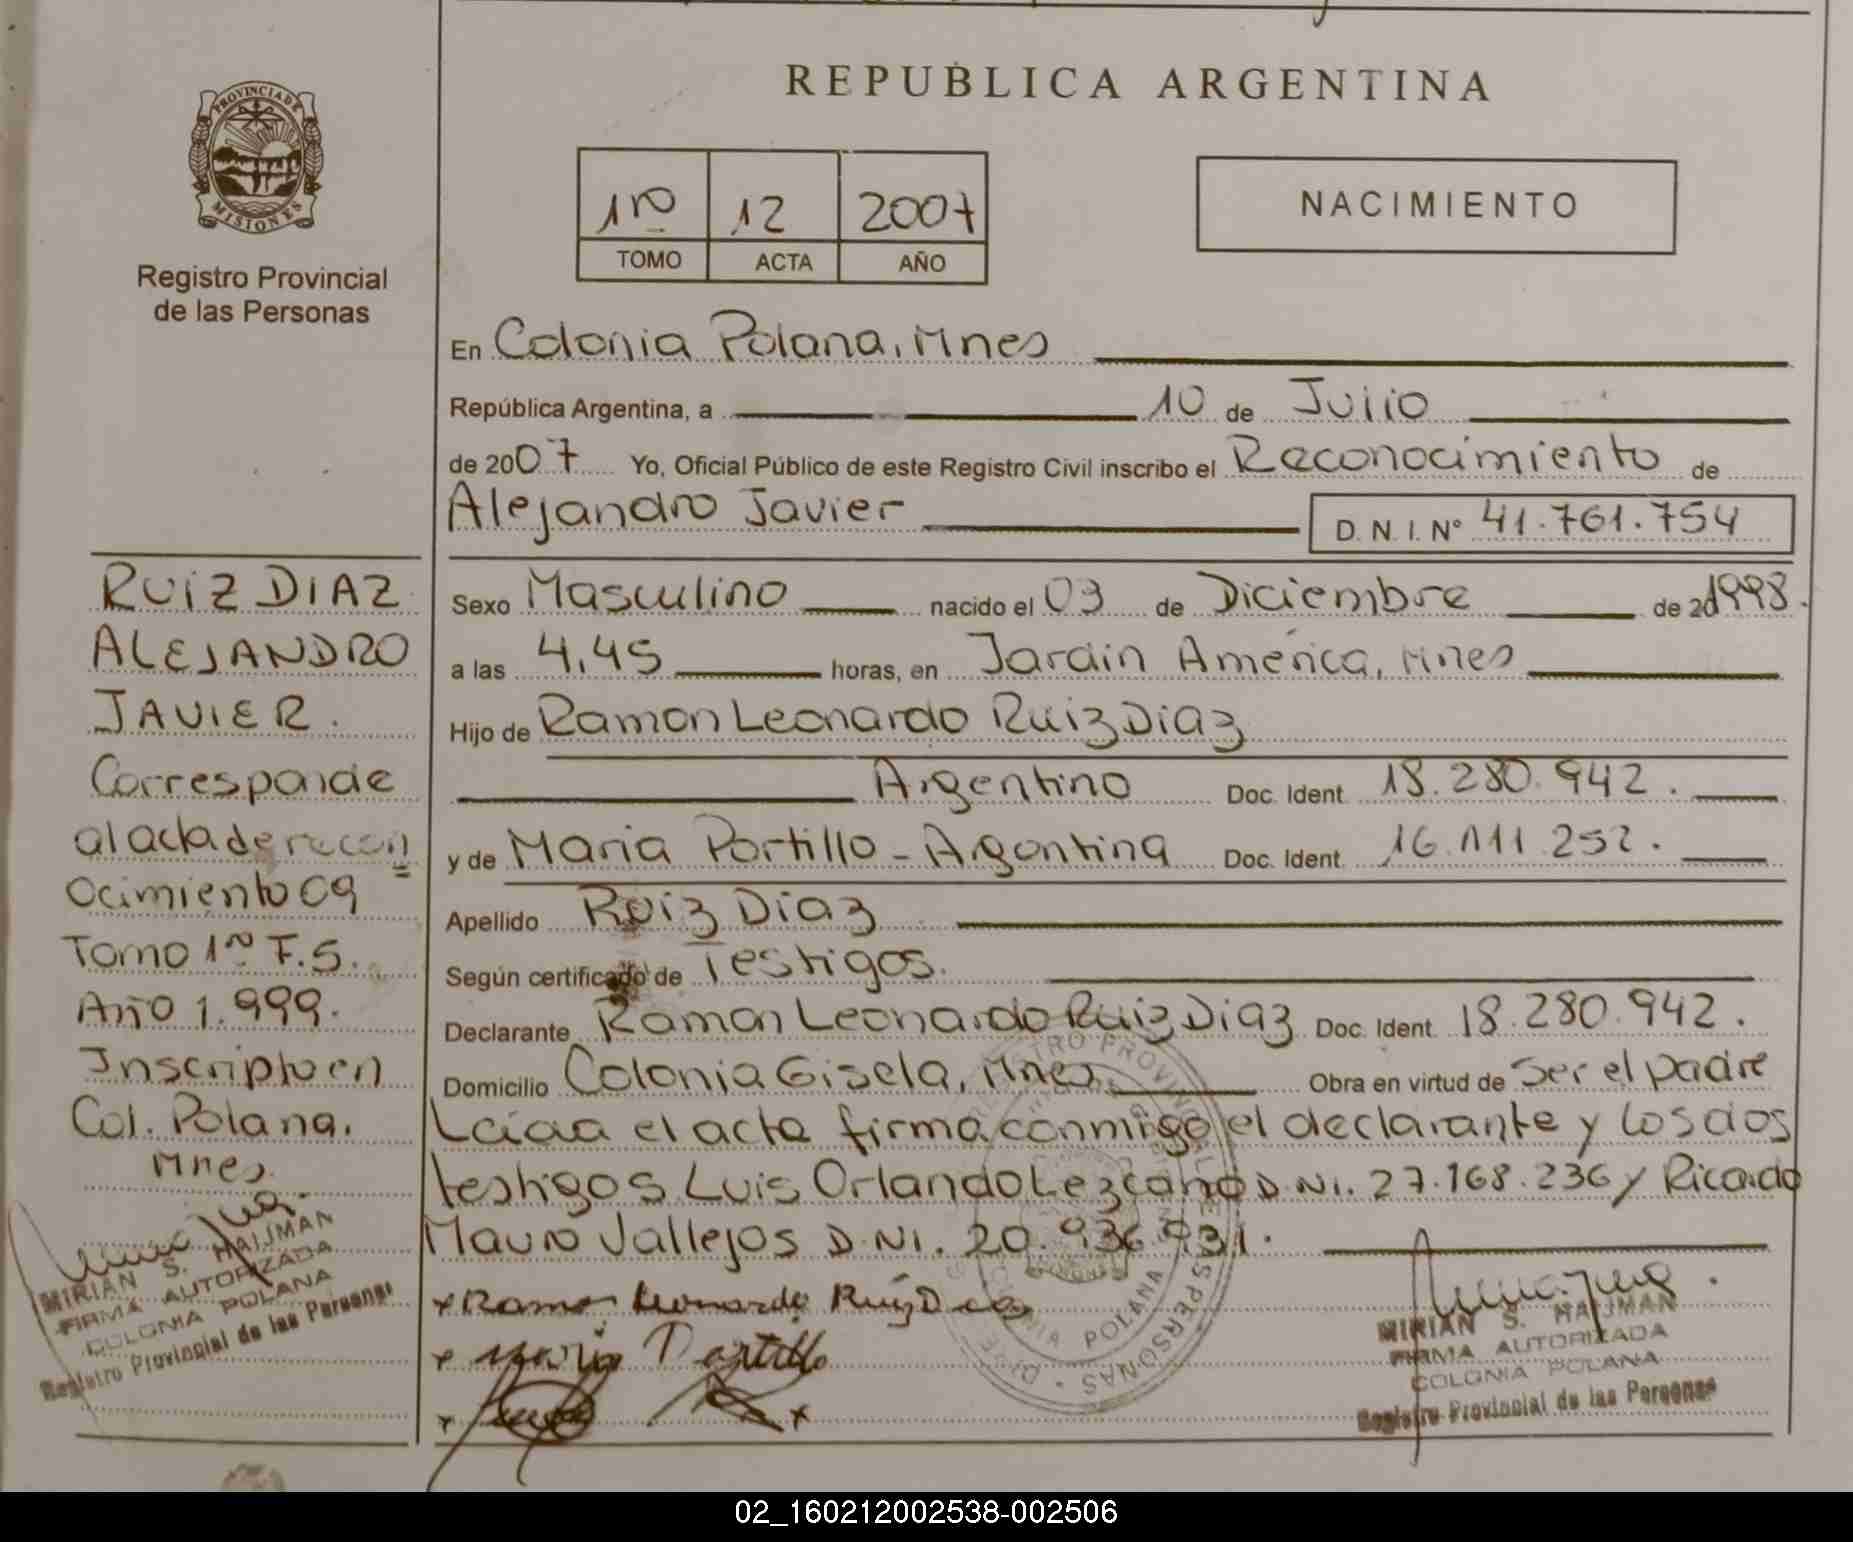 PROVINCIA DE
MISIONES
Registro Provincial
de las Personas
RUIZ DIAZ
ALEJANDRO
JAVIER.
Corresponde
al acta de recon=
ocimiento 09
Tomo 1ro F.5.
Año 1.999.
Inscripto en
Col. Polana.
Mnes.
MIRIAN S. HAIJMAN
FIRMA AUTORIZADA
COLONIA POLANA
Registro Provincial de las Personas
REPUBLICA ARGENTINA
1ro 12 2007
TOMO ACTA AÑO
NACIMIENTO
En Colonia Polana, Mnes
República Argentina, a 10 de Julio
de 2007 Yo, Oficial Público de este Registro Civil inscribo el Reconocimiento de
Alejandro Javier D. N. I. N° 41.761.754
Sexo Masculino nacido el 03 de Diciembre de 201998.
a las 4,45 horas, en Jardin América, Mnes
Hijo de Ramon Leonardo Ruiz Diaz
Argentino Doc. Ident. 18.280.942.
y de Maria Portillo - Argentina Doc. Ident. 16.111.252.
Apellido Ruiz Diaz
Según certificado de Testigos.
Declarante Ramon Leonardo Ruiz Diaz Doc. Ident. 18.280.942.
Domicilio Colonia Gisela, Mnes Obra en virtud de Ser el padre
Leida el acta firma conmigo el declarante y los dos
testigos Luis Orlando Lezcano D.Ni. 27.168.236 y Ricardo
Mauro Vallejos D.Ni. 20.936.931.
x Ramon Leonardo Ruiz Diaz
x Maria Portillo
MIRIAN S. HAIJMAN
FIRMA AUTORIZADA
COLONIA POLANA
Registro Provincial de las Personas
02_160212002538-002506